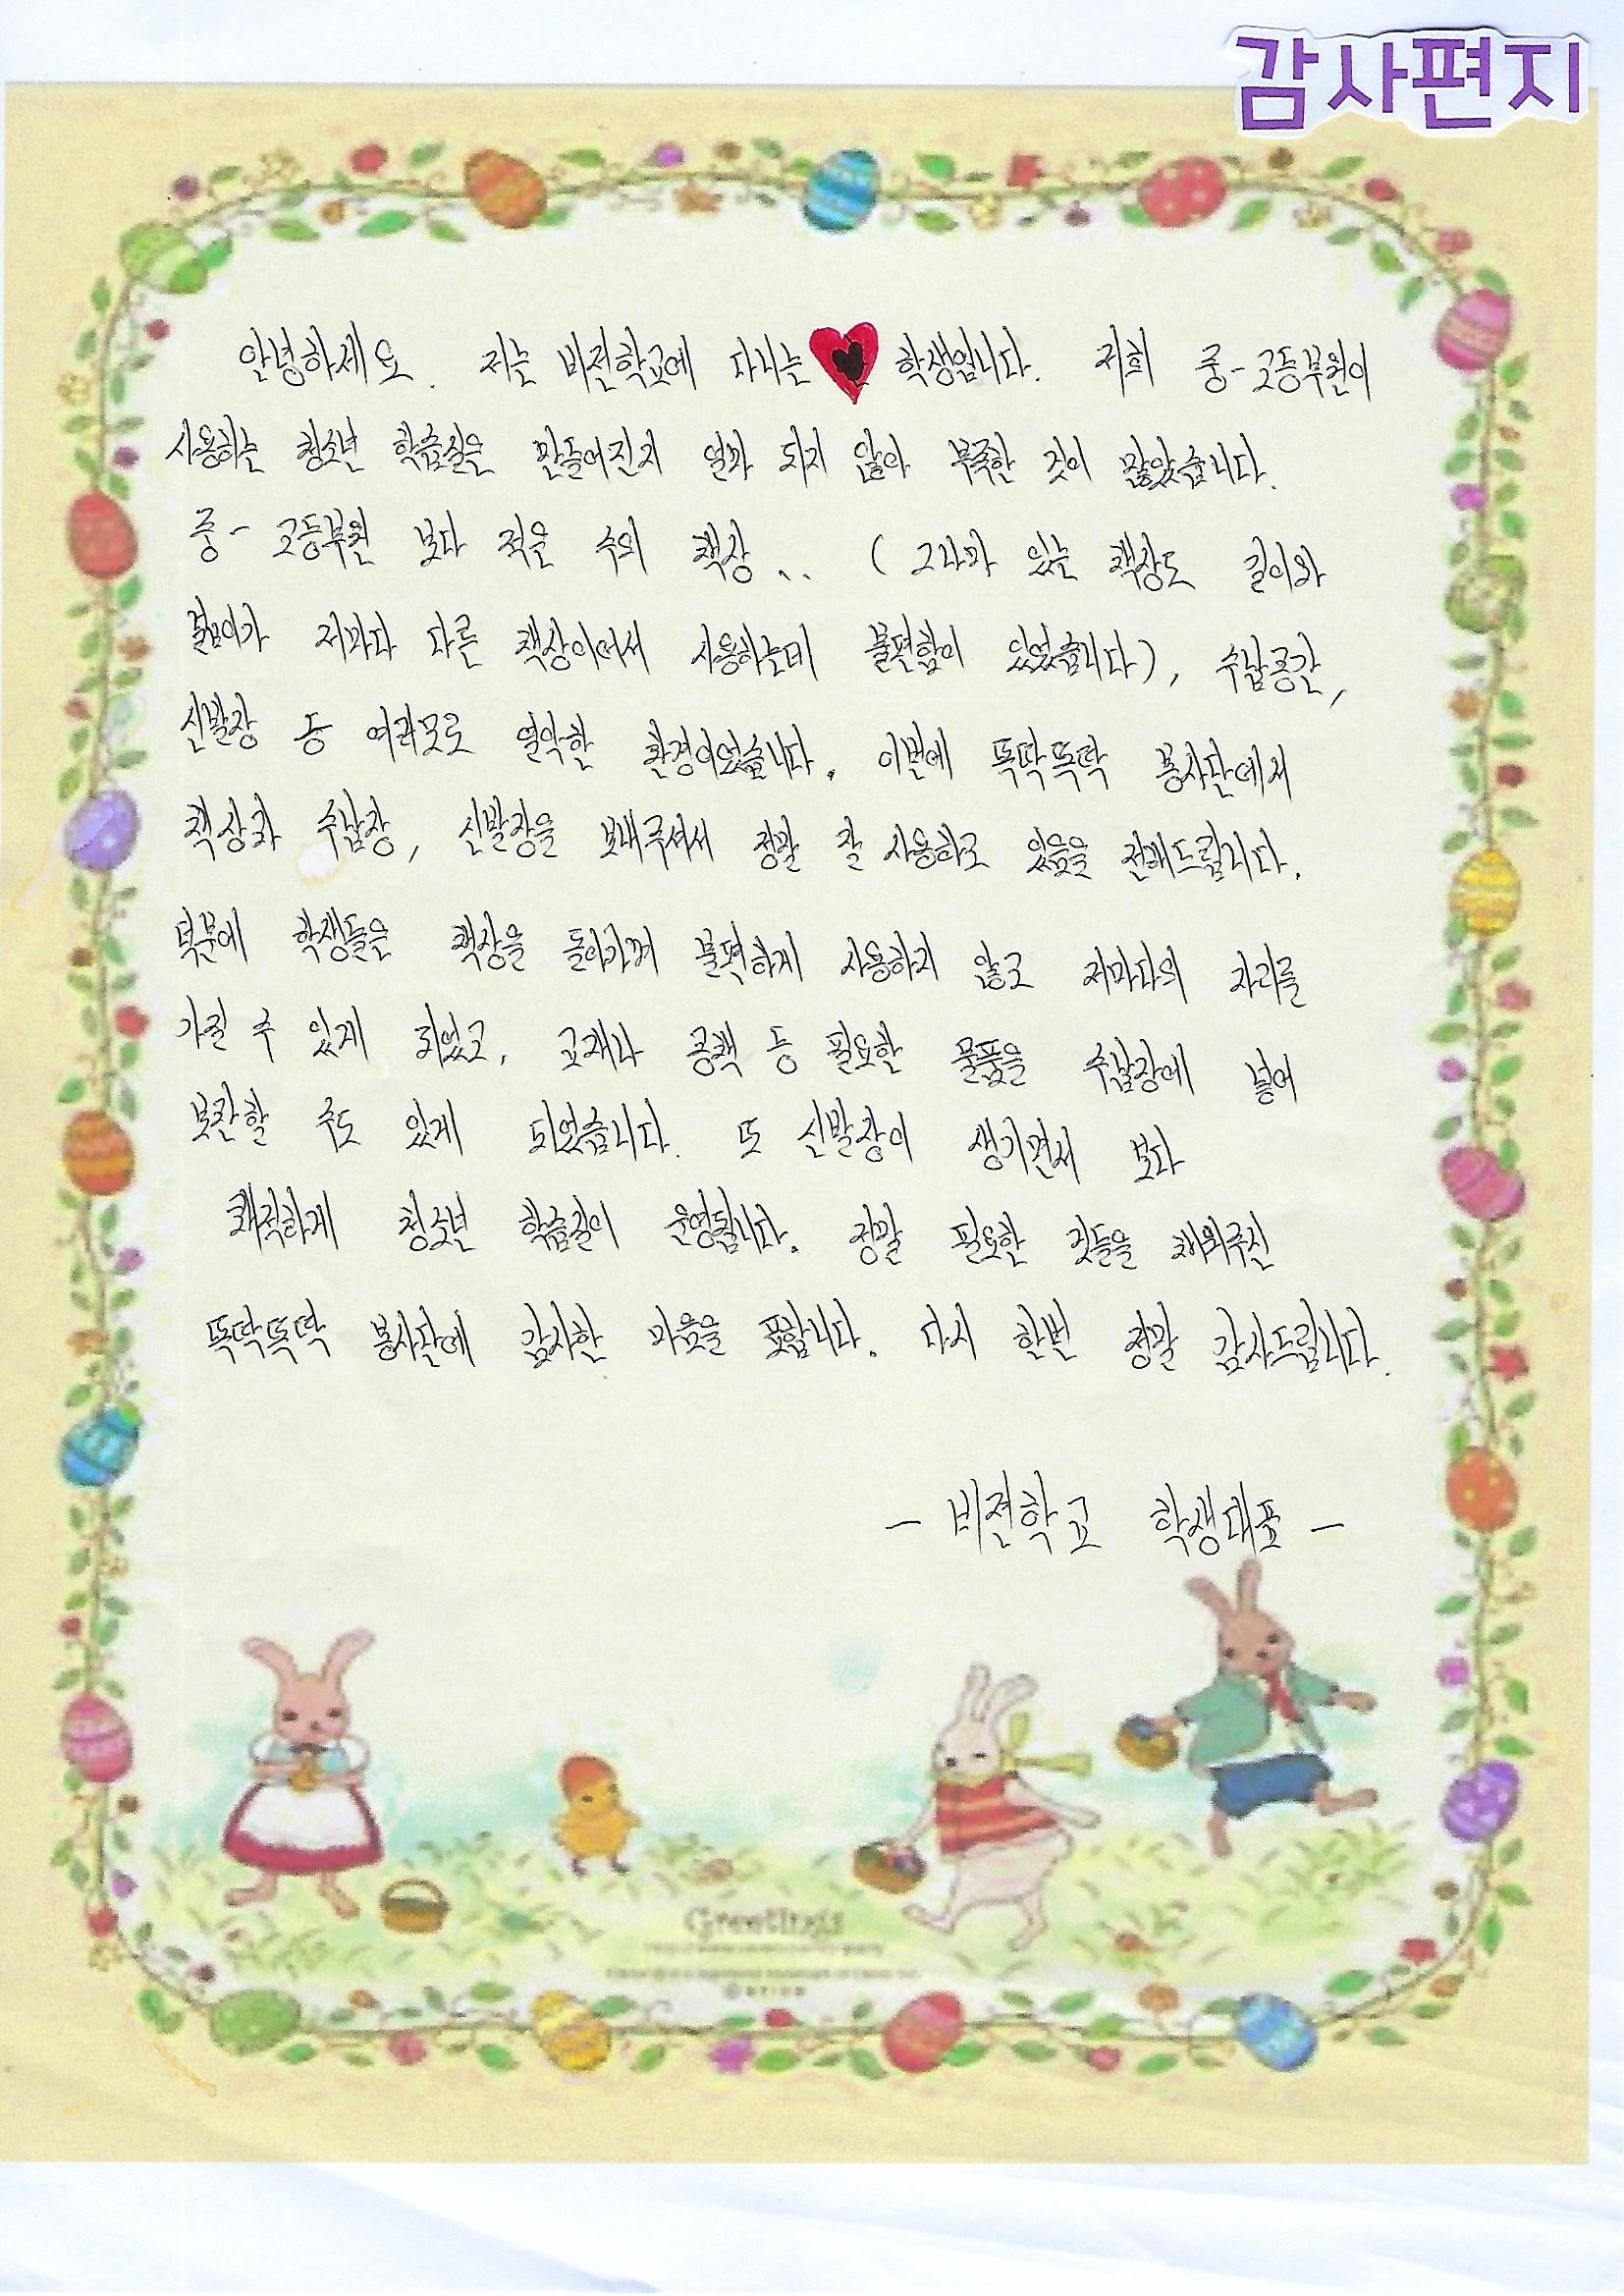 감사편지
안녕하세요. 저는 비전학교에 다니는 학생입니다. 저희 중-고등부원이
사용하는 청소년 학습실은 만들어진지 얼마 되지 않아 부족한 것이 많았습니다.
중- 고등부원 보다 적은 수의 책상.. (그나마 있는 책상도 길이와
넓이가 저마다 다른 책상이여서 사용하는데 불편함이 있었습니다), 수납공간,
신발장 등 여러모로 열악한 환경이었습니다. 이번에 뚝딱뚝딱 봉사단에서
책상과 수납장, 신발장을 보내주셔서 정말 잘 사용하고 있음을 전해드립니다.
덕분에 학생들은 책상을 돌아가며 불편하게 사용하지 않고 저마다의 자리를
가질 수 있게 되었고, 교재나 공책 등 필요한 물품을 수납장에 넣어
보관할 수도 있게 되었습니다. 또 신발장이 생기면서 보다
쾌적하게 청소년 학습실이 운영됩니다. 정말 필요한 것들을 채워주신
뚝딱뚝딱 봉사단에 감사한 마음을 표합니다. 다시 한번 정말 감사드립니다.
- 비전학교 학생대표 -
Greetings